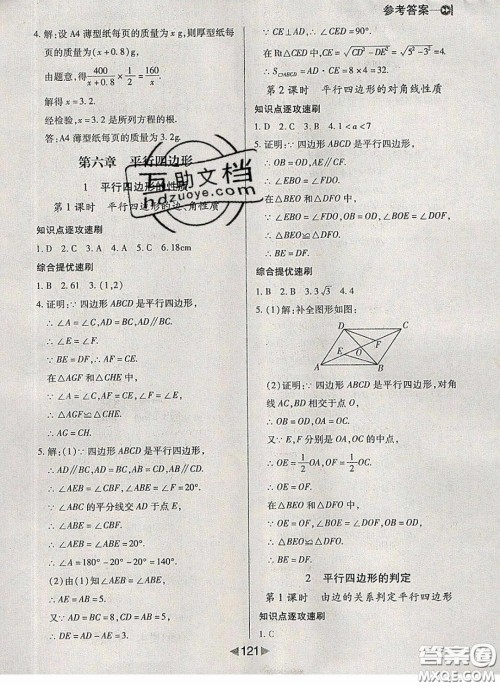 参考答案
4. 解:设A4薄型纸每页的质量为x g,则厚型纸每
页的质量为(x+0.8)g,
由题意,得400/(x+0.8)×1/2=160/x.
解得x=3.2.
经检验,x=3.2是所列方程的根.
答:A4薄型纸每页的质量为3.2g.
第六章 平行四边形
1 平行四边形的性质
第1课时 平行四边形的边、角性质
知识点逐攻速刷
1. D 2. C 3. A 4. A 5. C 6. 18cm
综合提优速刷
1. B 2. 61 3. (1,2)
4. 证明:∵四边形ABCD是平行四边形,
∴∠A=∠C,AD=BC,AD∥BC.
∴∠E=∠F.
∵BE=DF,∴AF=CE.
在△AGF和△CHE中,
∵∠A=∠C,AF=CE,∠F=∠E,
∴△AGF≌△CHE.
∴AG=CH.
5. 解:(1)∵四边形ABCD是平行四边形,
∴AD∥BC,AD=BC,AB=CD,AB∥CD.
∴∠AEB=∠CBF,∠ABE=∠F=20°.
∵∠ABC的平分线交AD于点E,
∴∠ABE=∠CBF.
∴∠AEB=∠ABE=20°.
∴∠A=180°-20°-20°=140°.
(2)由(1)知∠AEB=∠ABE,
∴AE=AB=5.
又∵AD=BC=8,CD=AB=5,
∴DE=AD-AE=3.
∵CE⊥AD,∴∠CED=90°.
在Rt△CED中,CE=√(CD²-DE²)=√(5²-3²)=4.
∴S▱ABCD=AD·CE=8×4=32.
第2课时 平行四边形的对角线性质
知识点逐攻速刷
1. D 2. B 3. A 4. 1<a<7
5. 证明:∵四边形ABCD是平行四边形,
∴OB=OD,AE∥DF.
∴∠EBO=∠FDO.
在△EBO和△DFO中,
∴△EBO≌△DFO.
∴BE=DF.
综合提优速刷
1. B 2. B 3. 3√3 4. 4
5. (1)解:补全图形如图:
D C
F
E O
A B
(2)证明:∵四边形ABCD是平行四边形,对角
线AC,BD相交于点O,
∴OB=OD,OA=OC.
又∵E,F分别是OA,OC的中点,
∴OE=1/2OA,OF=1/2OC.
∴OE=OF.
在△BEO和△DFO中,
∵OE=OF,∠BOE=∠DOF,OB=OD,
∴△BEO≌△DFO.
∴BE=DF.
2 平行四边形的判定
第1课时 由边的关系判定平行四边形
知识点逐攻速刷
1. C
121
互助文档
hdzuoye.com
答案圈
MXQE.COM